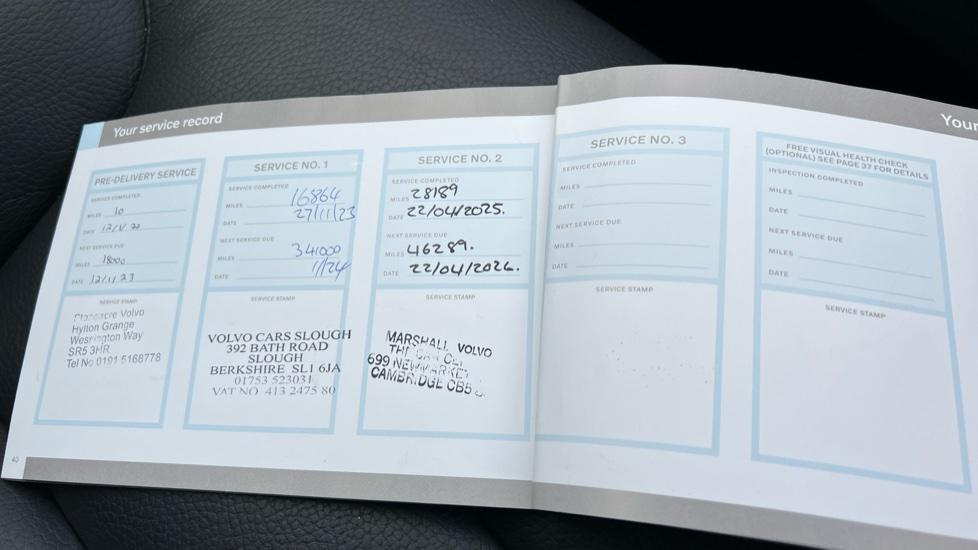 Your service record
PRE-DELIVERY SERVICE
SERVICE COMPLETED
MILES 10
DATE
NEXT SERVICE DUE
MILES 18000
DATE 12/11/23
SERVICE STAMP
Volvo
Hylton Grange
Wessington Way
SR5 3HR
Tel No 0191 5168778
SERVICE NO. 1
SERVICE COMPLETED
MILES 16864
DATE 27/11/23
NEXT SERVICE DUE
MILES 34000
DATE 1/24
SERVICE STAMP
VOLVO CARS SLOUGH
392 BATH ROAD
SLOUGH
BERKSHIRE SL1 6JA
01753 523031
VAT NO 413 2475 80
SERVICE NO. 2
SERVICE COMPLETED
MILES 28189
DATE 22/04/2025.
NEXT SERVICE DUE
MILES 46289.
DATE 22/04/2026.
SERVICE STAMP
MARSHALL VOLVO
699 NEWMARKET
CAMBRIDGE CB5
SERVICE NO. 3
SERVICE COMPLETED
MILES
DATE
NEXT SERVICE DUE
MILES
DATE
SERVICE STAMP
Your
FREE VISUAL HEALTH CHECK
(OPTIONAL) SEE PAGE 37 FOR DETAILS
INSPECTION COMPLETED
MILES
DATE
NEXT SERVICE DUE
MILES
DATE
SERVICE STAMP
40